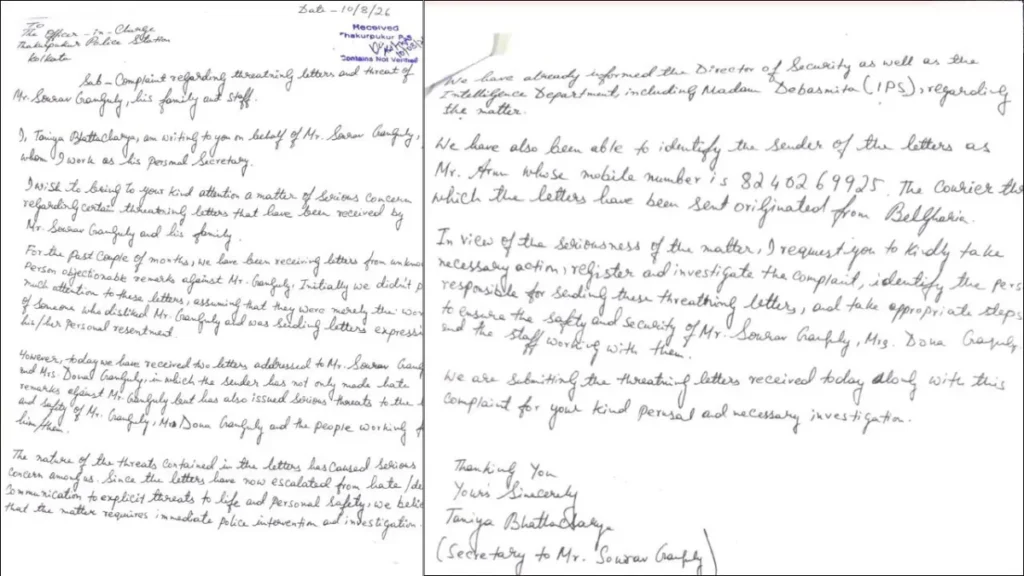 Date - 10/8/26
To
The Officer-in-Charge
Thakurpukur Police Station
Kolkata
Received
Thakurpukur
Contains Not Verified
Sub - Complaint regarding threatning letters and threat of
Mr. Sourav Ganguly, his family ant staff.
I, Taniya Bhattacharya, am writing to you on behalf of Mr. Sourav Ganguly,
whom I work as his personal Secretary.
I wish to bring to your kind attention a matter of serious concern
regarding certain threatning letters that have been received by
Mr. Sourav Ganguly and his family.
For the past couple of months, we have been receiving letters from
person objectionable remarks against Mr. Ganguly. Initially we didn't
much attention to these letters, assuming that they were merely the
of someone who disliked Mr. Ganguly and was sending letters
his/her personal resentment.
However, today we have received two letters addressed to Mr. Sourav
and Mrs. Dona Ganguly, in which the sender has not only made hate
remarks against Mr. Ganguly but has also issued serious threats to the
and safety of Mr. Ganguly, Mrs Dona Ganguly and the people working
him/them.
The nature of the threats contained in the letters has caused serious
concern among us. Since the letters have now escalated from hate
communication to explicit threats to life and personal safety, we
that the matter requires immediate police intervention ad investigation.
We have already informed the Director of Security as well as the
Intelligence Department, including Madam Dobasmita (IPS), regarding
the matter.
We have also been able to identify the sender of the letters as
Mr. Arun whose mobile number is 8240269925. The Courier
which the letters have been sent originated from Belgharia.
In view of the seriousness of the matter, I request you to kindly take
necessary action, register ad investigate the complaint, identify the
responsible for sending these threatning letters, and take appropriate steps
to ensure the safety and security of Mr. Sourav Ganguly, Mrs. Dona Ganguly
and the staff working with them.
We are submitting the threatning letters received today along with this
complaint for your kind perusal ad necessary investigation.
Thanking You
Yours Sincerely
Taniya Bhattacharya
(Secretary to Mr. Sourav Ganguly)